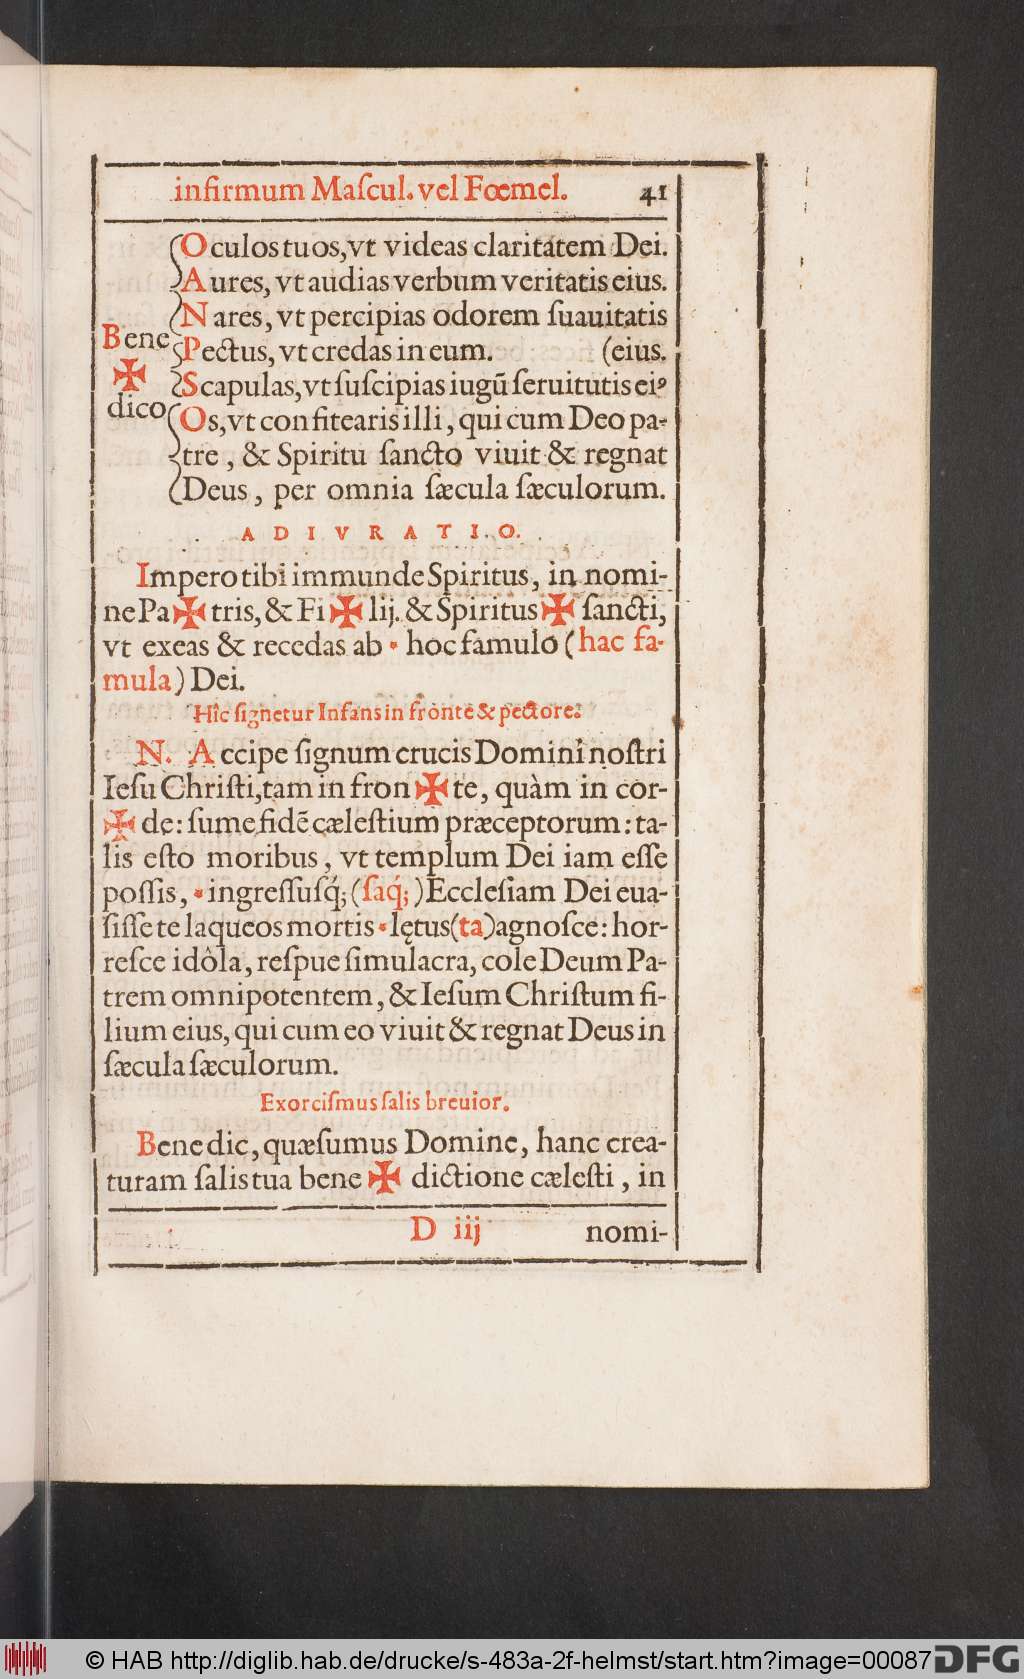 infirmum Maſcul. vel Fœmel. 41
Oculos tuos, vt videas claritatem Dei.
Aures, vt audias verbum veritatis eius.
Nares, vt percipias odorem ſuauitatis
Bene Pectus, vt credas in eum. (eius.
✠ Scapulas, vt ſuſcipias iugũ ſeruitutis eiꝰ
dico Os, vt confitearis illi, qui cum Deo pa-
tre, & Spiritu ſancto viuit & regnat
Deus, per omnia ſæcula ſæculorum.
ADIVRATIO.
Impero tibi immunde Spiritus, in nomi-
ne Pa✠tris, & Fi✠lij. & Spiritus✠ſancti,
vt exeas & recedas ab * hoc famulo (hac fa-
mula) Dei.
Hîc ſignetur Infans in fronte & pectore.
N. Accipe ſignum crucis Domini noſtri
Ieſu Chriſti, tam in fron✠te, quàm in cor-
✠de: ſume fidẽ cæleſtium præceptorum: ta-
lis eſto moribus, vt templum Dei iam eſſe
poſſis, *ingreſſuſq́; (ſaq́;) Eccleſiam Dei eua-
ſiſſe te laqueos mortis *lętus(ta)agnoſce: hor-
reſce idôla, reſpue ſimulacra, cole Deum Pa-
trem omnipotentem, & Ieſum Chriſtum fi-
lium eius, qui cum eo viuit & regnat Deus in
ſæcula ſæculorum.
Exorciſmus ſalis breuior.
Benedic, quæſumus Domine, hanc crea-
turam ſalis tua bene✠dictione cæleſti, in
D iij nomi-
© HAB http://diglib.hab.de/drucke/s-483a-2f-helmst/start.htm?image=00087 DFG